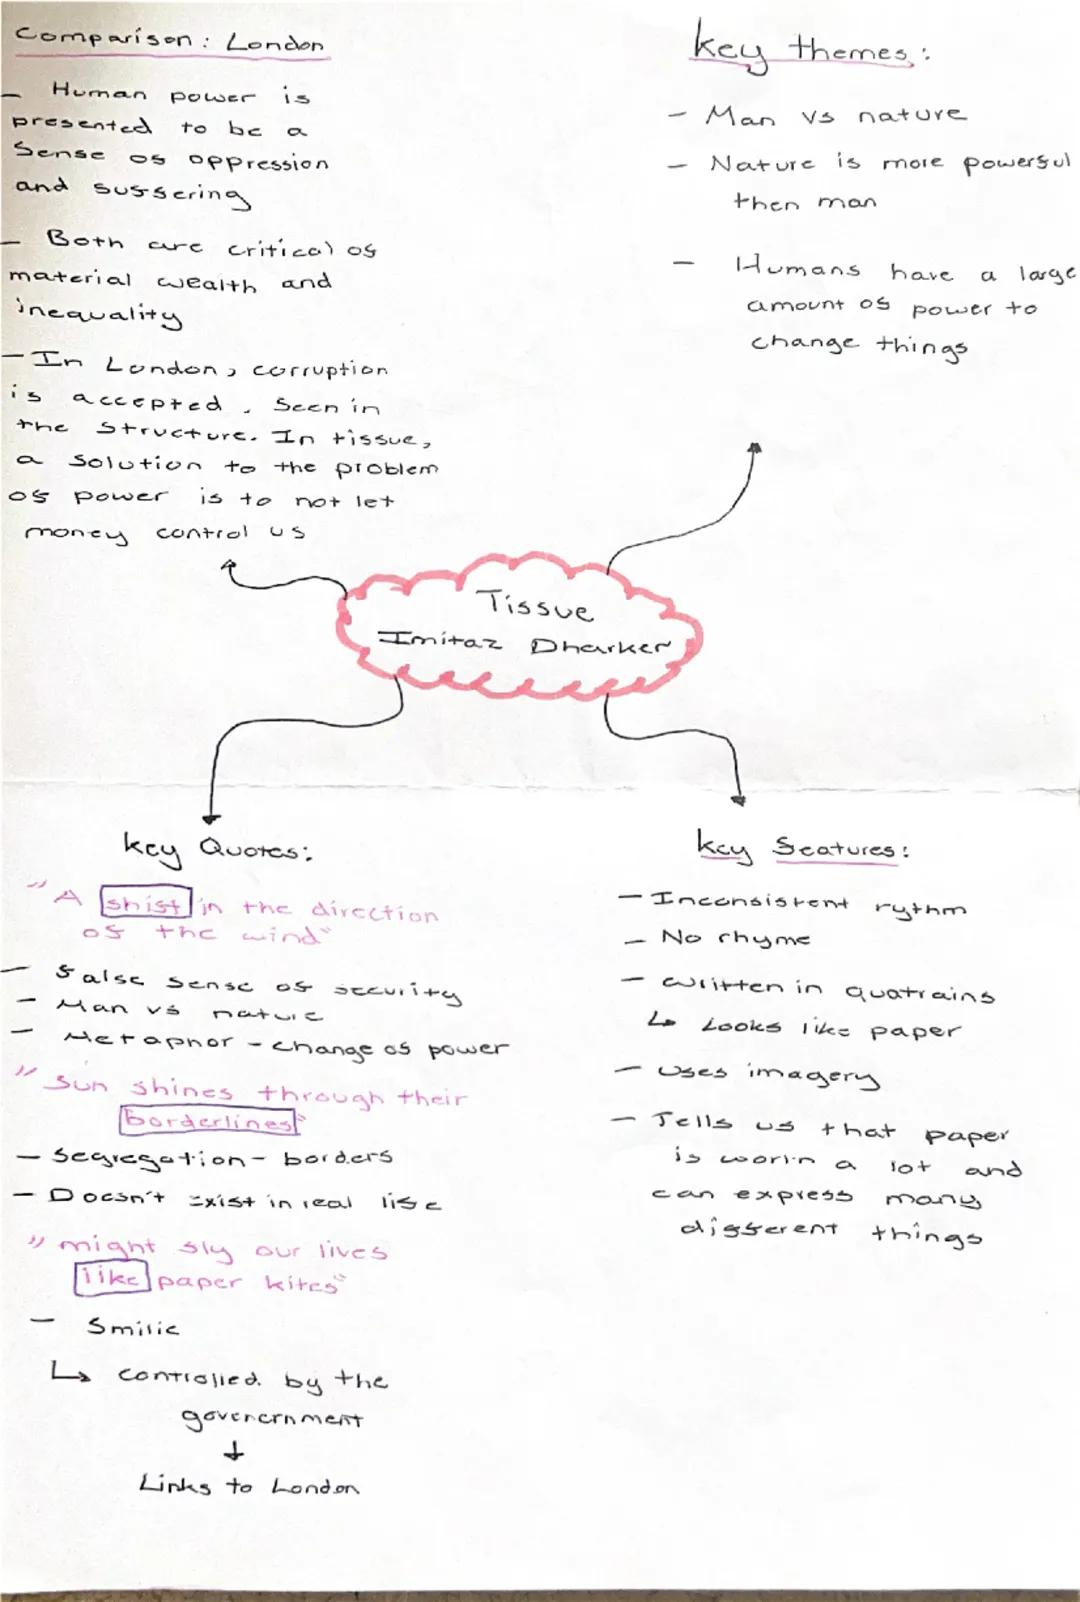 Comparison: London
- Human power is
presented to be a
sense of oppression
and suffering
- Both are critical of
material wealth and
inequality
- In London, corruption
is accepted. Seen in
the structure. In tissue,
a solution to the problem
of power is to not let
money control us
key themes:
- Man vs nature
- Nature is more powerful
then man
- Humans have a large
amount of power to
change things
Tissue
Imitaz Dharker
key Quotes:
"A shift in the direction
of the wind"
- false sense of security
- Man vs nature
- Metaphor - change of power
"Sun shines through their
borderlines"
- Segregation - borders
- Doesn't exist in real life
"might fly our lives
like paper kites"
- Smilie
↳ controlled by the
govenernment
↓
Links to London
key features:
- Inconsistent rythm
- No rhyme
- written in quatrains
↳ Looks like paper
- uses imagery
- Tells us that paper
is worth a lot and
can express many
different things